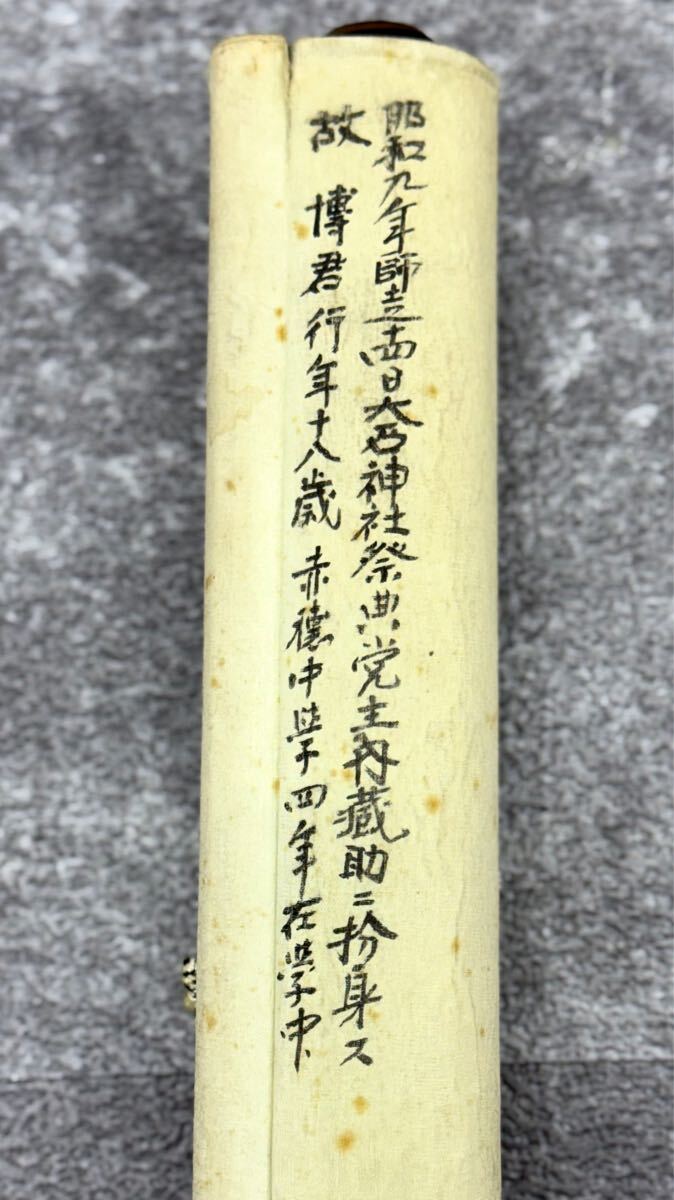 昭和九年師走十四日大石神社祭典党主内蔵助ニ扮身ス
故 博君行年十八歳 赤穂中學四年在学中